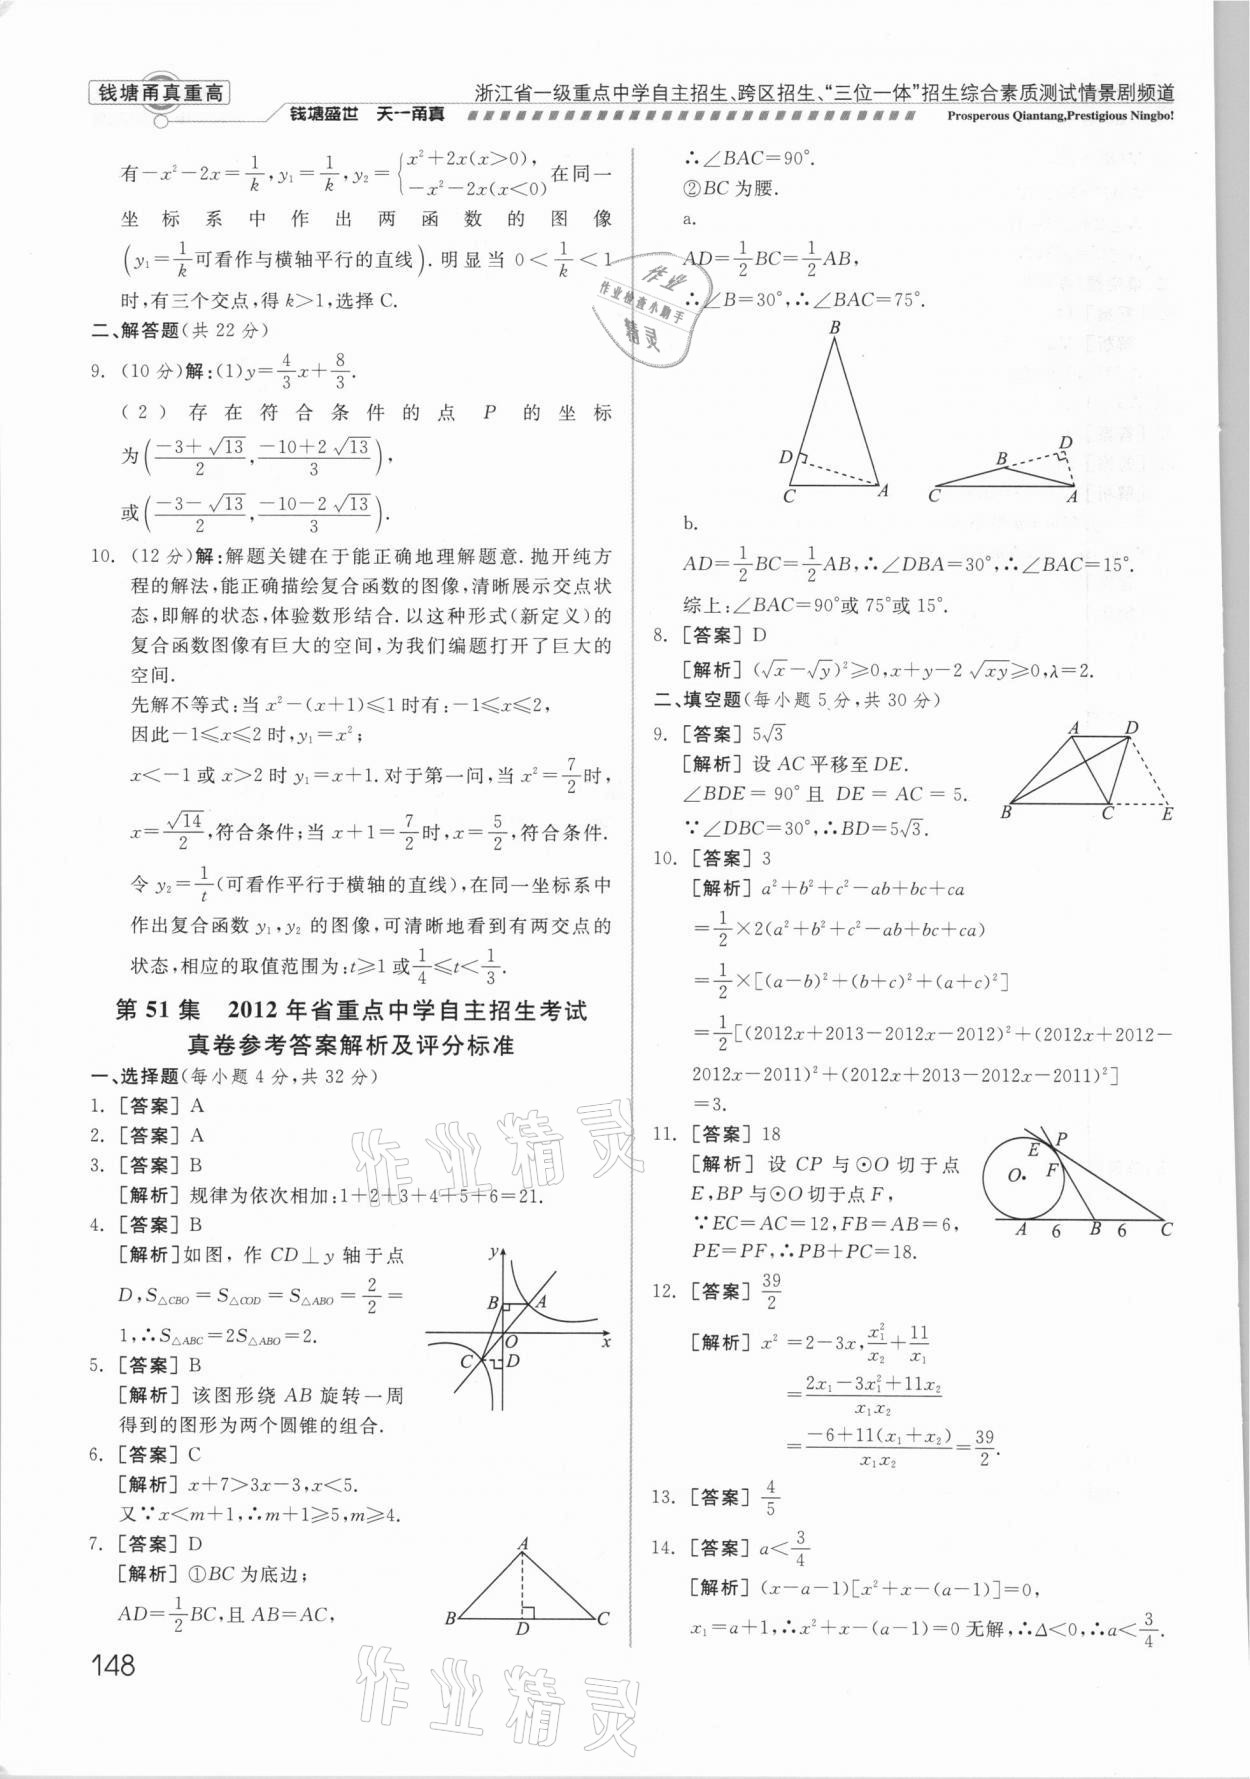 钱塘甬真重高
钱塘盛世 天一甬真
浙江省一级重点中学自主招生、跨区招生、“三位一体”招生综合素质测试情景剧频道
Prosperous Qiantang,Prestigious Ningbo!
有-x²-2x=1/k,y₁=1/k,y₂={x²+2x(x>0), -x²-2x(x<0) 在同一
坐标系中作出两函数的图像
(y₁=1/k可看作与横轴平行的直线).明显当0<1/k<1
时,有三个交点,得k>1,选择C.
二、解答题(共22分)
9. (10分)解:(1)y=4/3x+8/3.
(2)存在符合条件的点P的坐标
为((-3+√13)/2,(-10+2√13)/3),
或((-3-√13)/2,(-10-2√13)/3).
10. (12分)解:解题关键在于能正确地理解题意.抛开纯方
程的解法,能正确描绘复合函数的图像,清晰展示交点状
态,即解的状态,体验数形结合.以这种形式(新定义)的
复合函数图像有巨大的空间,为我们编题打开了巨大的
空间.
先解不等式:当x²-(x+1)≤1时有:-1≤x≤2,
因此-1≤x≤2时,y₁=x²;
x<-1或x>2时y₁=x+1.对于第一问,当x²=7/2时,
x=√14/2,符合条件;当x+1=7/2时,x=5/2,符合条件.
令y₂=1/t(可看作平行于横轴的直线),在同一坐标系中
作出复合函数y₁,y₂的图像,可清晰地看到有两交点的
状态,相应的取值范围为:t≥1或1/4≤t<1/3.
第51集 2012年省重点中学自主招生考试
真卷参考答案解析及评分标准
一、选择题(每小题4分,共32分)
1. [答案] A
2. [答案] A
3. [答案] B
[解析] 规律为依次相加:1+2+3+4+5+6=21.
4. [答案] B
[解析]如图,作CD⊥y轴于点
D,S△CBO=S△COD=S△ABO=2/2=
1,∴S△ABC=2S△ABO=2.
y
B
A
O
x
C
D
5. [答案] B
[解析] 该图形绕AB旋转一周
得到的图形为两个圆锥的组合.
6. [答案] C
[解析] x+7>3x-3,x<5.
又∵x<m+1,∴m+1≥5,m≥4.
7. [答案] D
[解析] ①BC为底边;
AD=1/2BC,且AB=AC,
A
B
D
C
148
∴∠BAC=90°.
②BC为腰.
a.
AD=1/2BC=1/2AB,
∴∠B=30°,∴∠BAC=75°.
B
D
C
A
D
B
C
A
b.
AD=1/2BC=1/2AB,∴∠DBA=30°,∴∠BAC=15°.
综上:∠BAC=90°或75°或15°.
8. [答案] D
[解析] (√x-√y)²≥0,x+y-2√xy≥0,λ=2.
二、填空题(每小题5分,共30分)
9. [答案] 5√3
[解析] 设AC平移至DE.
∠BDE=90°且DE=AC=5.
∵∠DBC=30°,∴BD=5√3.
A
D
B
C
E
10. [答案] 3
[解析] a²+b²+c²-ab+bc+ca
=1/2×2(a²+b²+c²-ab+bc+ca)
=1/2×[(a-b)²+(b+c)²+(a+c)²]
=1/2[(2012x+2013-2012x-2012)²+(2012x+2012-
2012x-2011)²+(2012x+2013-2012x-2011)²]
=3.
11. [答案] 18
[解析] 设CP与⊙O切于点
E,BP与⊙O切于点F,
∵EC=AC=12,FB=AB=6,
PE=PF,∴PB+PC=18.
E
P
F
O
A
6
B
6
C
12. [答案] 39/2
[解析] x²=2-3x,x₁²/x₂+11/x₁
=(2x₁-3x₁²+11x₂)/(x₁x₂)
=(-6+11(x₁+x₂))/(x₁x₂)=39/2.
13. [答案] 4/5
14. [答案] a<3/4
[解析] (x-a-1)[x²+x-(a-1)]=0,
x₁=a+1,∴x²+x-(a-1)=0无解,∴Δ<0,∴a<3/4.
作业
作业检查小助手
精灵
作业精灵
作业精灵